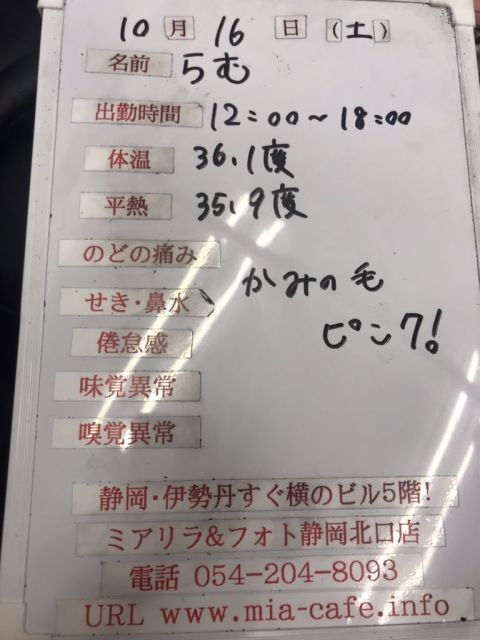 10月16日(土)
名前 らむ
出勤時間 12:00~18:00
体温 36.1度
平熱 35.9度
のどの痛み
かみの毛
せき・鼻水
ピンク!
倦怠感
味覚異常
嗅覚異常
静岡・伊勢丹すぐ横のビル5階!
ミアリラ&フォト静岡北口店
電話 054-204-8093
URL www.mia-cafe.info